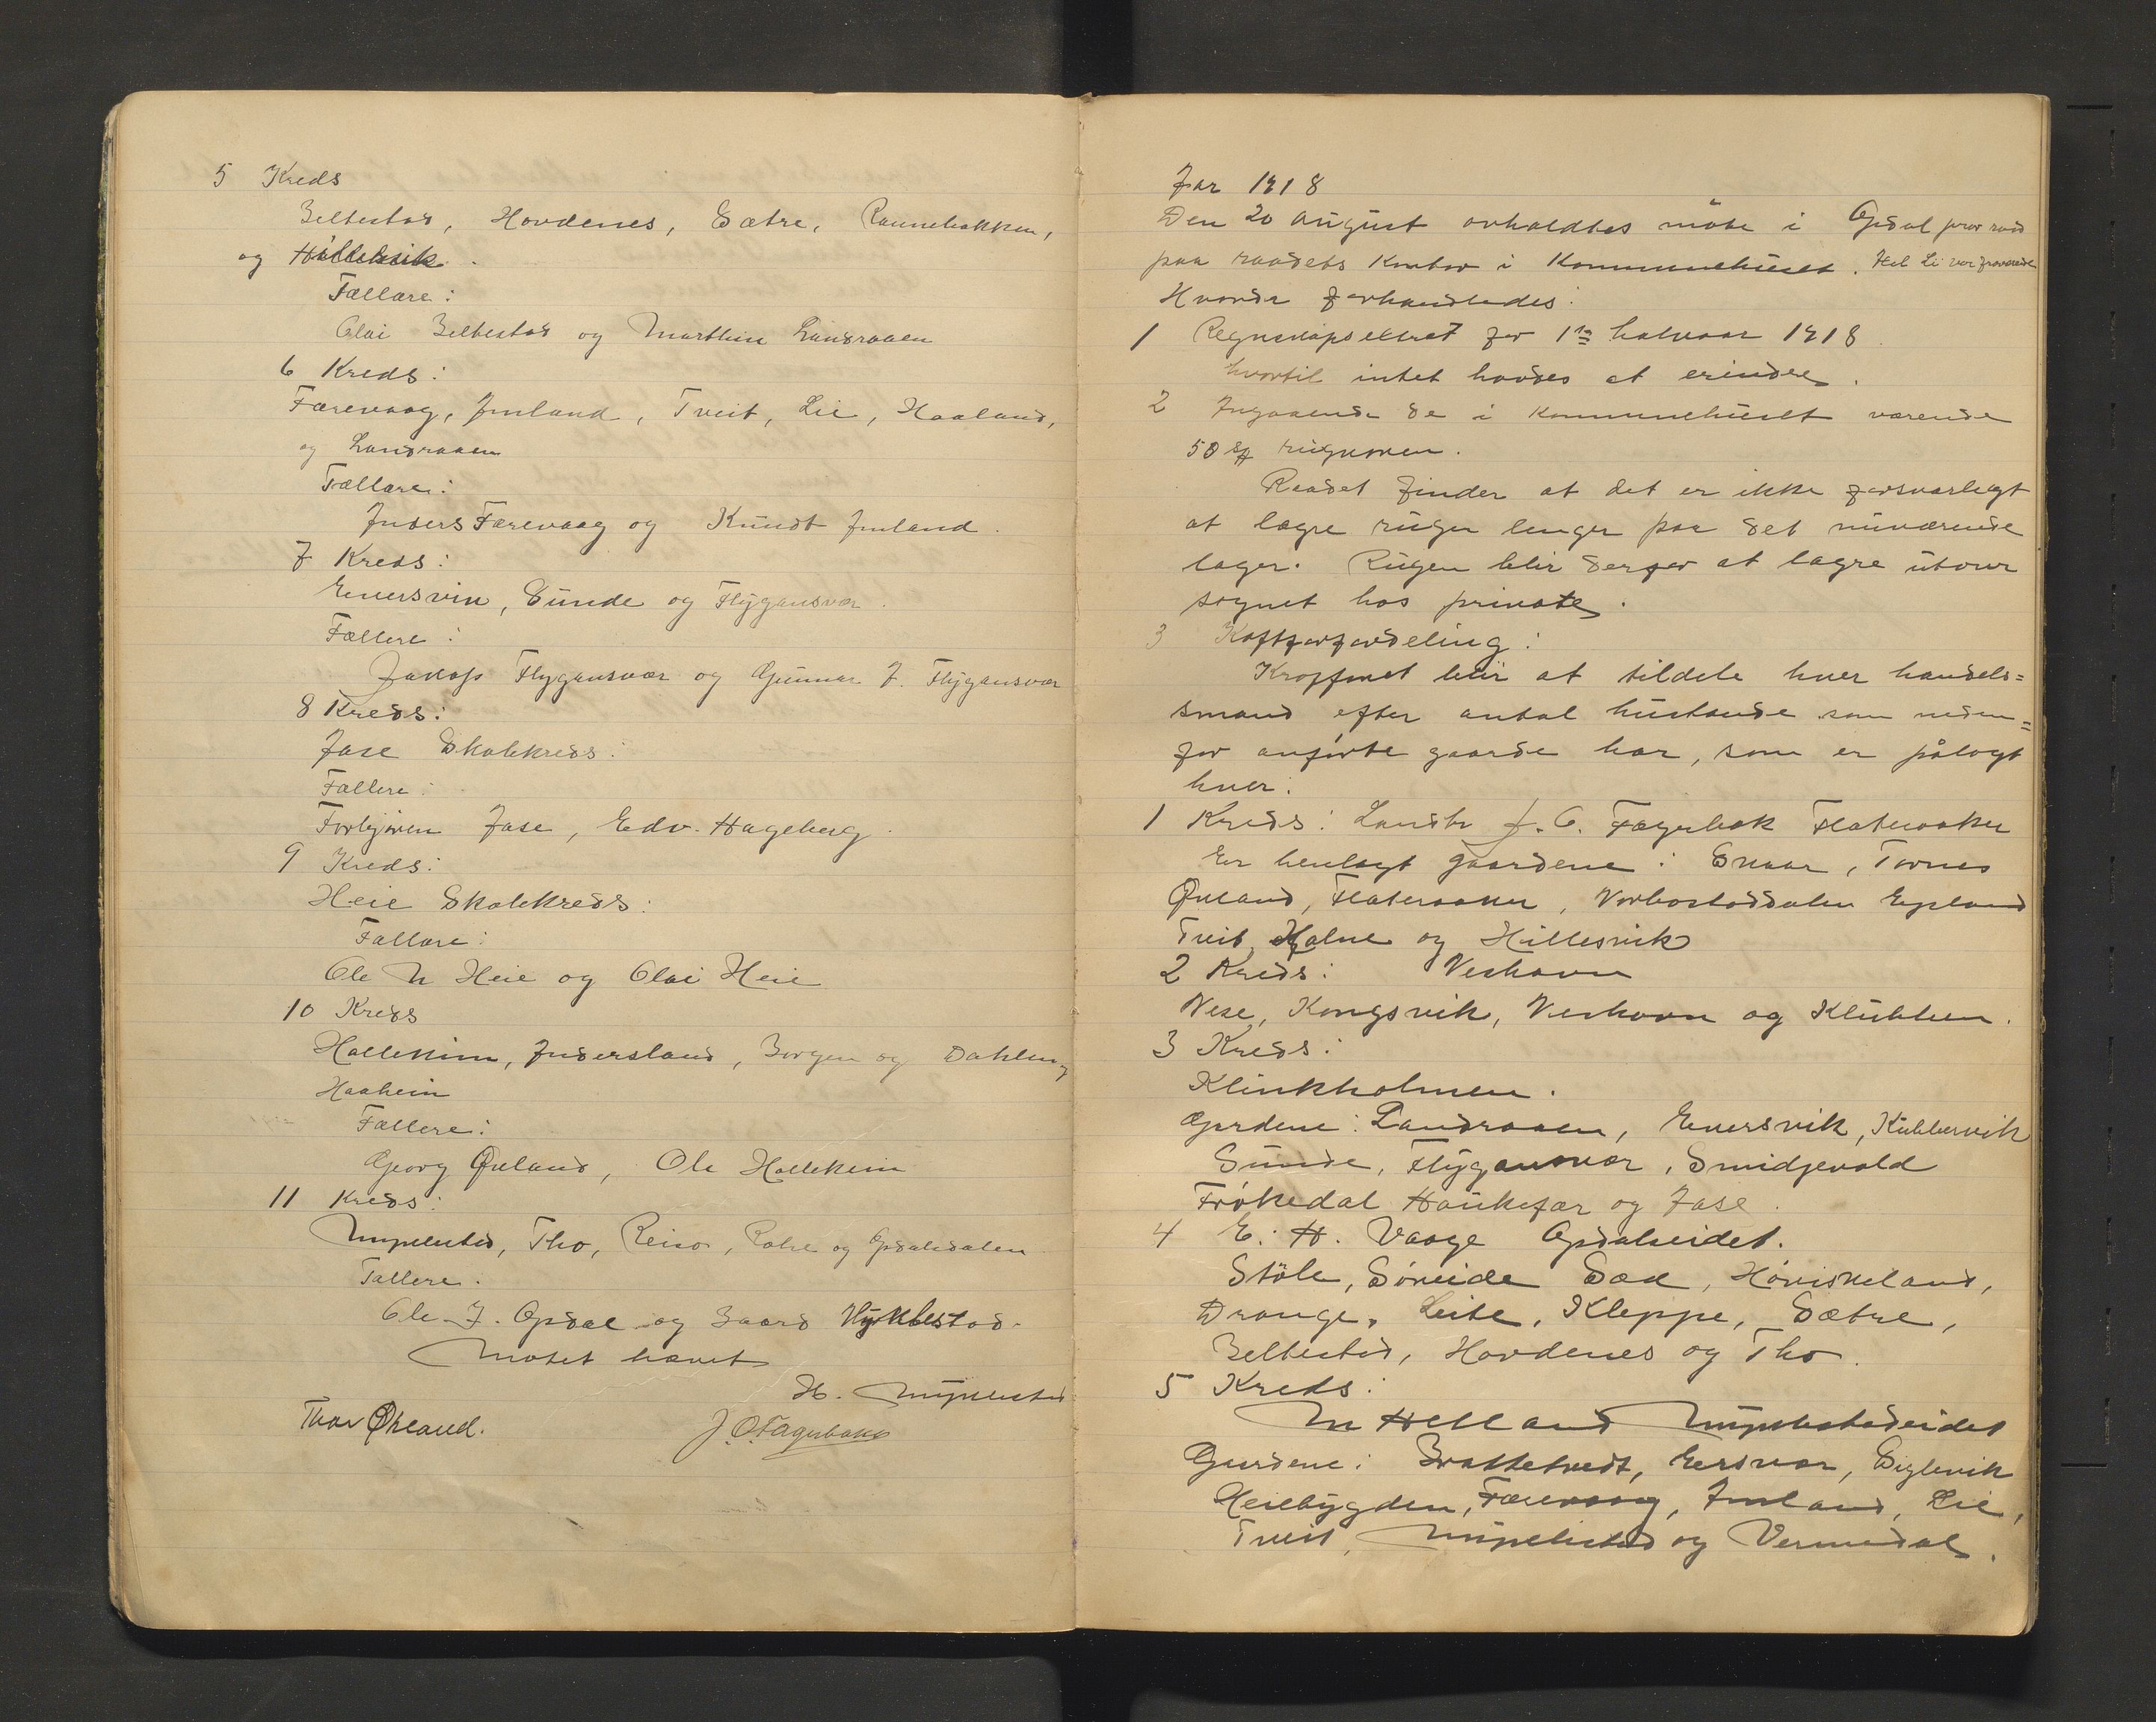 5 Kreds
Beltestad, Hovdenes, Sætre, Rannebakken,
og Hillelsvik.
Tællere:
Olai Beltestad og Marthin Landraaen
6 Kreds:
Færevaag, Imland, Tveit, Lie, Haaland,
og Landraaen
Tællere:
Anders Færevaag og Knudt Imland.
7 Kreds:
Enersvin, Sunde og Flygansvær.
Tællere:
Jakop Flygansvær og Gunnar J. Flygansvær
8 Kreds:
Fase Skolekreds:
Tællere:
Torbjøren Fase, Edv. Hageberg.
9 Kreds:
Heie Skolekreds:
Tællere:
Ole N Heie og Olai Heie
10 Kreds
Hallekim, Indersland, Borgen og Dahlen og
Haaheim
Tællere:
Georg Økland, Ole Hallekim
11 Kreds:
Myklestad, Tho, Reiso, og Opdalsdalen
Tællere.
Ole J. Opdal og Baard Myklestad.
Møtet hævet
H. Myklestad
Thor Økland.
J. O. Fagerbakk
Aar 1918
Den 20 august avholdtes møte i Opdal prov raad
paa raadets kontor i Kommunehuset. Hel Li var fraværende
Hvorda forhandledes:
1 Regnskapsextrat for 1ste halvaar 1918.
hvortil intet havdes at erindre.
2 Angaaende de i kommunehuset værende
50 rugkorn.
Raadet finder at det er ikke forsvarlegt
at lagre rugen lenger paa det nuværende
lager. Rugen blir derfor at lagre utover
sognet hos private.
3 Kaffeforfordeling:
blir at tildele hver handels=
smand efter antal hustande som neden=
for anførte gaarde har, som er pålagt
hver:
1 Kreds: Landh J. O. Fagerbak Flateraaker
Er henlagt gaardene: Skaar, Tornes
Økland, Flateraaker, Vorbostaddalen Epland
Tveit, Halne og Hillesvik
2 Kreds: Veshavn
Vese, Kongsvik, Veshavn og Klubben.
3 Kreds:
Klinkholmen.
Gardene: Landraaen, Enersvik, Kubbervik
Sunde, Flygansvær, Smidjevold
Frøkedal Haukefær og Fase.
4 E. H. Vaage Opdalseidet.
Støle, Søreide Sæd, Høviskeland,
Drange, Leite, Kleppe, Sætre,
Beltestad, Hovdenes og Tho.
5 Kreds:
M Helland Myklestadeidet
Gardene: Brattetvedt, Eersvær, Siglevik
Heiebygden, Færevaag, Imland, Lie,
Tveit, Myklestad og Vermedal.